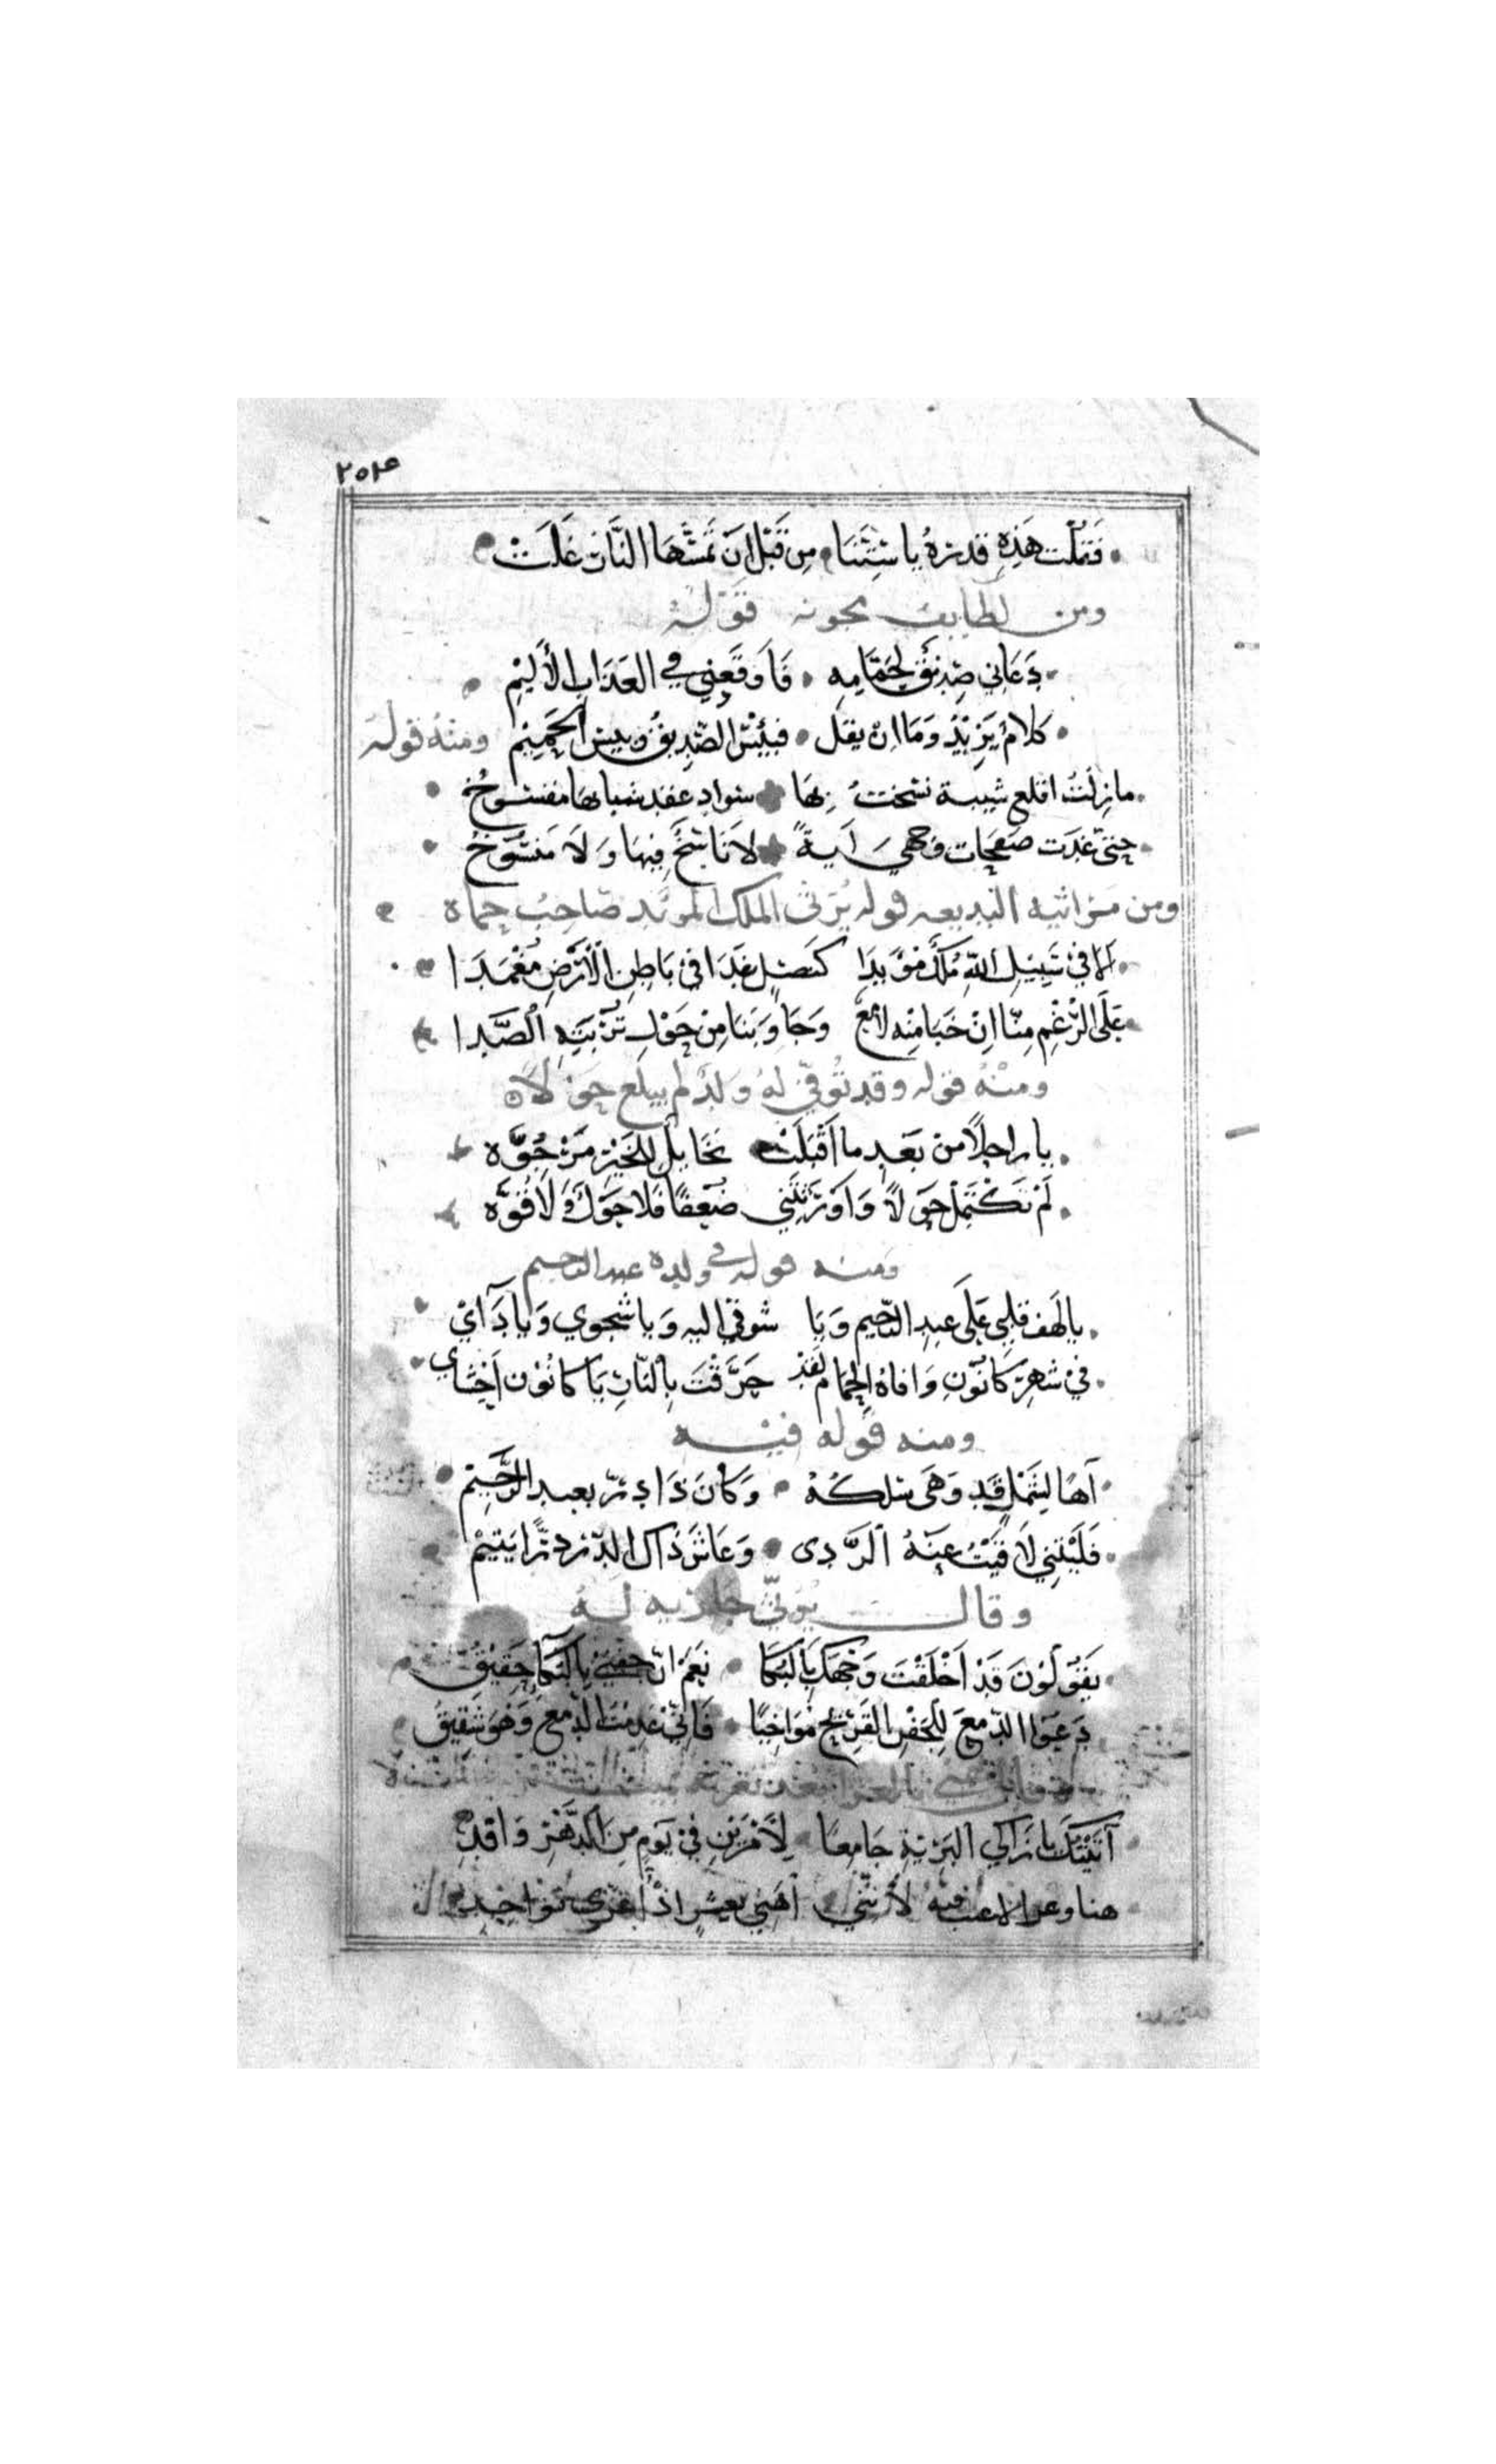 ٢٥٣
فَقُلْت هَذِهِ قدرةُ يا سِتَّنَا مِن قَبْلِ انَ تَمسَّهَا النَّار غَلَتْ
ومن لطايف مجونه قوله
دَعَاني صَدِيْقٌ لِحَمَّامِهِ فَاَوقَعَنِي في العَذابِ الأَلِيْمِ
كلامٌ يَزِيْدُ وَمَا انْ يقل فبِئْسَ الصَّدِيقُ وبيس الحَمِيْمِ ومنهُ قوله
مازلتُ اقلع شيبة نسخت بها سواد عقد شبابها مفسوخُ
حتى غدَت صفحات وجهي آيةً لَا نَاسِخٌ فِيهَا وَلَا مَنْسُوخُ
ومن مراثيه البديعه قوله يُرثى الملك المؤيد صَاحِبُ حماة
الا في سَبِيْلِ اللّهِ مُلكٌ مؤيدَا كنصلٍ غَدَا في بَاطِنِ الْأَرْضِ مُغْمَدَا
عَلَى الرُّغْمِ مِنّا اِنْ خَبَا مِنْه لامع وَجَاوَبَنَا مِنْ حَوْلِ تُرْبَتِهِ الصَّدا
ومنْهُ قوله وقد تُوفّي لهُ وَلَدٌ لم يبلغ حَولاً
يا راحلاً من بَعد ما اَقْبَلَتْ مَخَايلٌ للخَيْرِ مَرْجُوَّه
لَمْ تَكْتَمِلْ حَولاً وَاَوْرَثتَنِي ضُعفًا فَلا حَوْلَ وَلَا قُوَّه
ومنه قوله في ولده عبد الرحيم
يالَهف قلبي عَلَى عبدِ الرَّحيم وَيَا شوقي اليه وَيا شجوي وَيا دَآئي
في شهر كانُونِ وَافاهُ الحِمَام لقد حَرَّقْتَ بِالنّارِ يَا كانُوْن اَحْشَاي
ومنه قوله فيه
آهًا لِشَمْلٍ قد وَهَى سلكهُ وَكَانَ ذَا درّ بعبد الرَّحِيْمِ
فَلَيْتَنِي لَاقَيْتُ عَنْهُ الرَّدى وَعَاشَ ذَاك الدّر درًّا يَتِيْمْ
وقال يُرثي جاريه له
يَقُولُوْنَ قَدْ اَخْلَقْتَ وَجْهَكَ بِالبُكَا نعَمْ انّ جفني بِالبُكا حَقِيْقُ
دَعَوا الدّمعَ لِلجَفْنِ القَرِيْحِ مُوَاخِيًا فَانّي عَدِمْتُ الدّمعَ وَهو شَقِيْقُ
آتَيْتُكَ يا زَاكي البَرِيّةِ جَامِعًا لِأَمْرَيْنِ في يَومٍ مِنَ الدَّهْرِ وَاقِد
هنا وعزا لا عتب فيه لأنّني اُهَنِي بعشرٍ اذْ اُعَزّي بواحِد